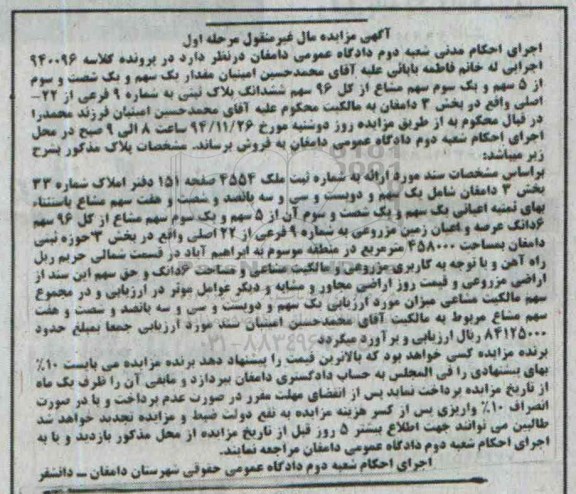 آگهی مزایده مال غیرمنقول مرحله اول
اجرای احکام مدنی شعبه دوم دادگاه عمومی دامغان درنظر دارد در پرونده کلاسه ۹۴۰۰۹۶
اجرایی له خانم فاطمه بابائی علیه آقای محمدحسین امینیان مقدار یک سهم و یک شصت و سوم
از ۵ سهم و یک سوم سهم مشاع از کل ۹۶ سهم ششدانگ پلاک ثبتی به شماره ۹ فرعی از ۲۲-
اصلی واقع دو بخش ۳ دامغان به مالکیت محکوم علیه آقای محمدحسین امینیان فرزند محمدرا
در قبال محکوم به از طریق مزایده روز دوشنبه مورخ ۹۴/۱۱/۲۶ ساعت ۸ الی ۹ صبح در محل
اجرای احکام شعبه دوم دادگاه عمومی دامغان به فروش برساند. مشخصات پلاک مذکور بشرح
زیر میباشد:
براساس مشخصات سند مورد ارائه به شماره ثبت ملک ۴۵۵۴ صفحه ۱۵۱ دفتر املاک شماره ۳۳
بخش ۳ دامغان شامل یک سهم و دویست و سی و سه پانصد و شصت و هفت سهم مشاع باستثناء
بهای ثمنیه اعیانی یک سهم و یک شصت و سوم آن از ۵ سهم و یک سوم سهم مشاع از کل ۹۶ سهم
۶دانگ عرصه و اعیان زمین مزروعی به شماره ۹ فرعی از ۲۲ اصلی واقع در بخش ۳ حوزه ثبتی
دامغان بمساحت ۴۵۸۰۰۰ مترمربع در منطقه موسوم به ابراهیم آباد در قسمت شمالی حریم ریل
راه آهن و با توجه به کاربری مزروعی و مالکیت مشاعی و مساحت ۶دانگ و حق سهم این سند از
اراضی مزروعی و قیمت روز اراضی مجاور و مشابه و دیگر عوامل موثر در ارزیابی و در مجموع
سهم مالکیت مشاعی میزان مورد ارزیابی یک سهم و دویست و سی و سه پانصد و شصت و هفت
سهم مشاع مربوط به مالکیت آقای محمدحسین امینیان سند مورد ارزیابی جمعا بمبلغ حدود
۸۴۱۲۵۰۰۰ ریال ارزیابی و برآورد میگردد
برنده مزایده کسی خواهد بود که بالاترین قیمت را پیشنهاد دهد برنده مزایده می بایست ۱۰٪
بهای پیشنهادی را فی المجلس به حساب دادگستری دامغان بپردازد و مابقی آن را ظرف یک ماه
از تاریخ مزایده پرداخت نماید پس از انقضای مهلت مقرر در صورت عدم پرداخت و یا در صورت
انصراف ۱۰٪ واریزی پس از کسر هزینه مزایده به نفع دولت ضبط و مزایده تجدید خواهد شد
طالبین می توانند جهت اطلاع بیشتر ۵ روز قبل از تاریخ مزایده از محل مذکور بازدید و یا به
اجرای احکام شعبه دوم دادگاه عمومی دامغان مراجعه نمایند.
اجرای احکام شعبه دوم دادگاه عمومی حقوقی شهرستان دامغان – دانشفر